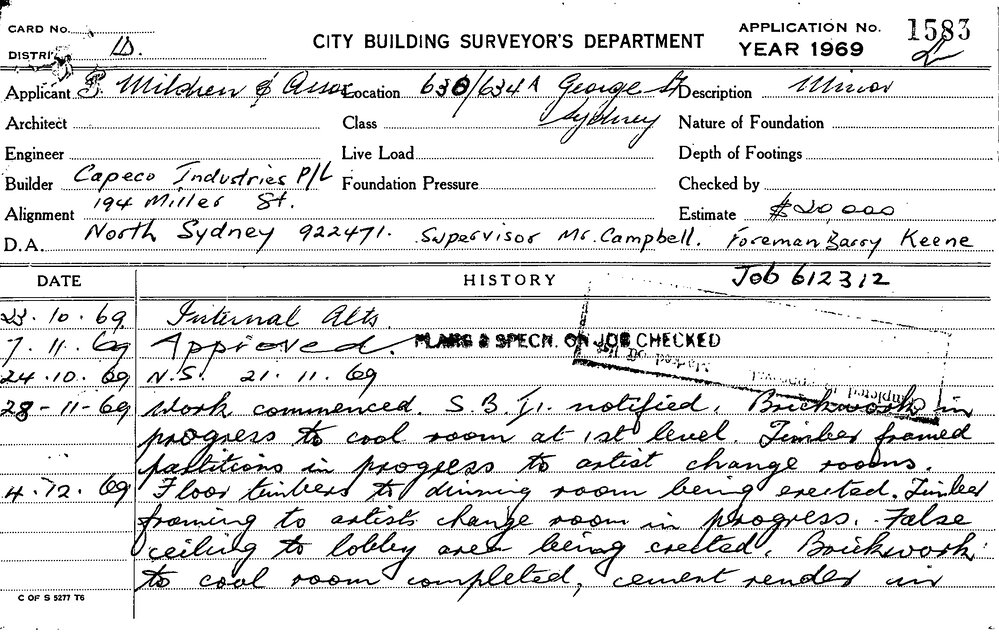 CARD No.
DISTRICT D.
CITY BUILDING SURVEYOR'S DEPARTMENT
APPLICATION No. 1583
YEAR 1969
Applicant S. Mildren & Assoc Location 630/634A George St Description Minor
Architect Class Sydney Nature of Foundation
Engineer Live Load Depth of Footings
Builder Capeco Industries P/L Foundation Pressure Checked by
Alignment 194 Miller St. Estimate $20,000
D.A. North Sydney 922471. Supervisor Mr. Campbell. Foreman Barry Keene
DATE HISTORY Job 612312
23.10.69 Internal Alts.
7.11.69 Approved. PLANS & SPECN. ON JOB CHECKED
24.10.69 N.S. 21.11.69
28-11-69 Work commenced. S.B.I. notified. Brickwork in
progress to cool room at 1st level. Timber framed
partitions in progress to artist change rooms.
4.12.69 Floor timbers to dinning room being erected. Timber
framing to artists change room in progress. False
ceiling to lobby area being erected. Brickwork
to cool room completed, cement render in
C OF S 5277 T6